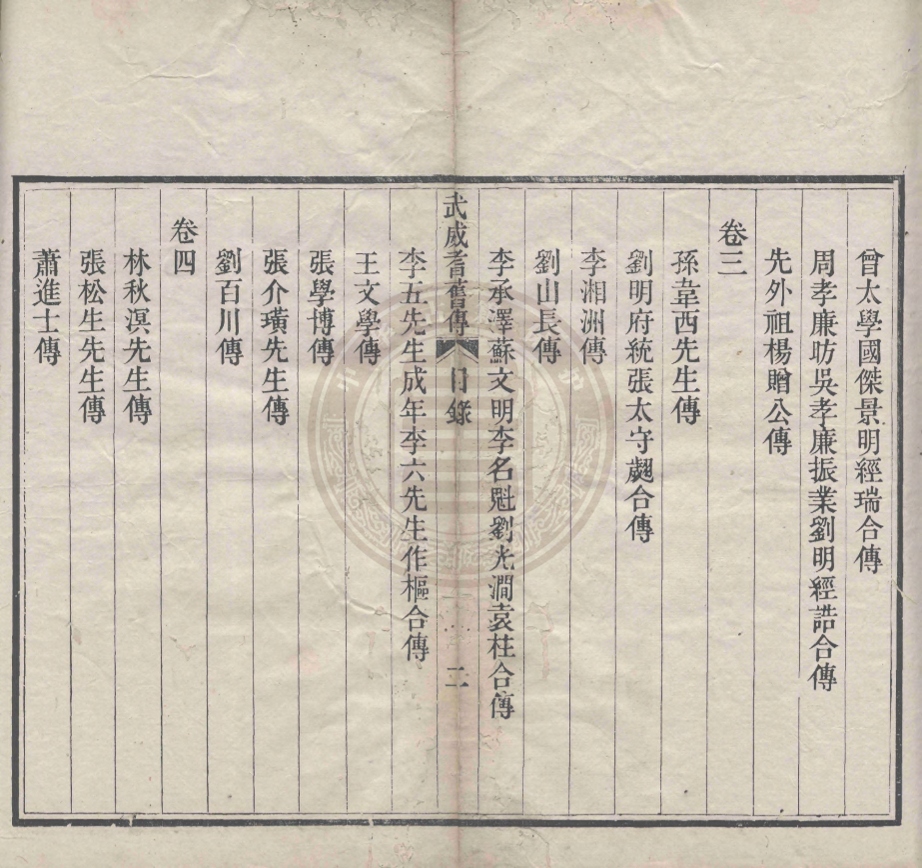 曾太學國傑景明經瑞合傳
周孝廉昉吳孝廉振業劉明經誥合傳
先外祖楊贈公傳
卷三
孫韋西先生傳
劉明府統張太守翽合傳
李湘洲傳
劉山長傳
李承澤蘇文明李名魁劉光澗袁柱合傳
武威耆舊傳 目錄 二
李五先生成年李六先生作樞合傳
王文學傳
張學博傳
張介璜先生傳
劉百川傳
卷四
林秋溟先生傳
張松生先生傳
蕭進士傳